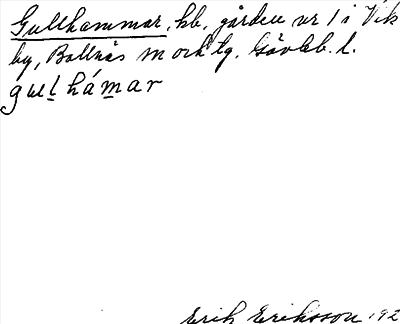 Gullhammar, hb, gården nr 1 i Vik
by, Bollnäs sn och tg. Gävleb. l.
gullhámar
Erik Eriksson 192